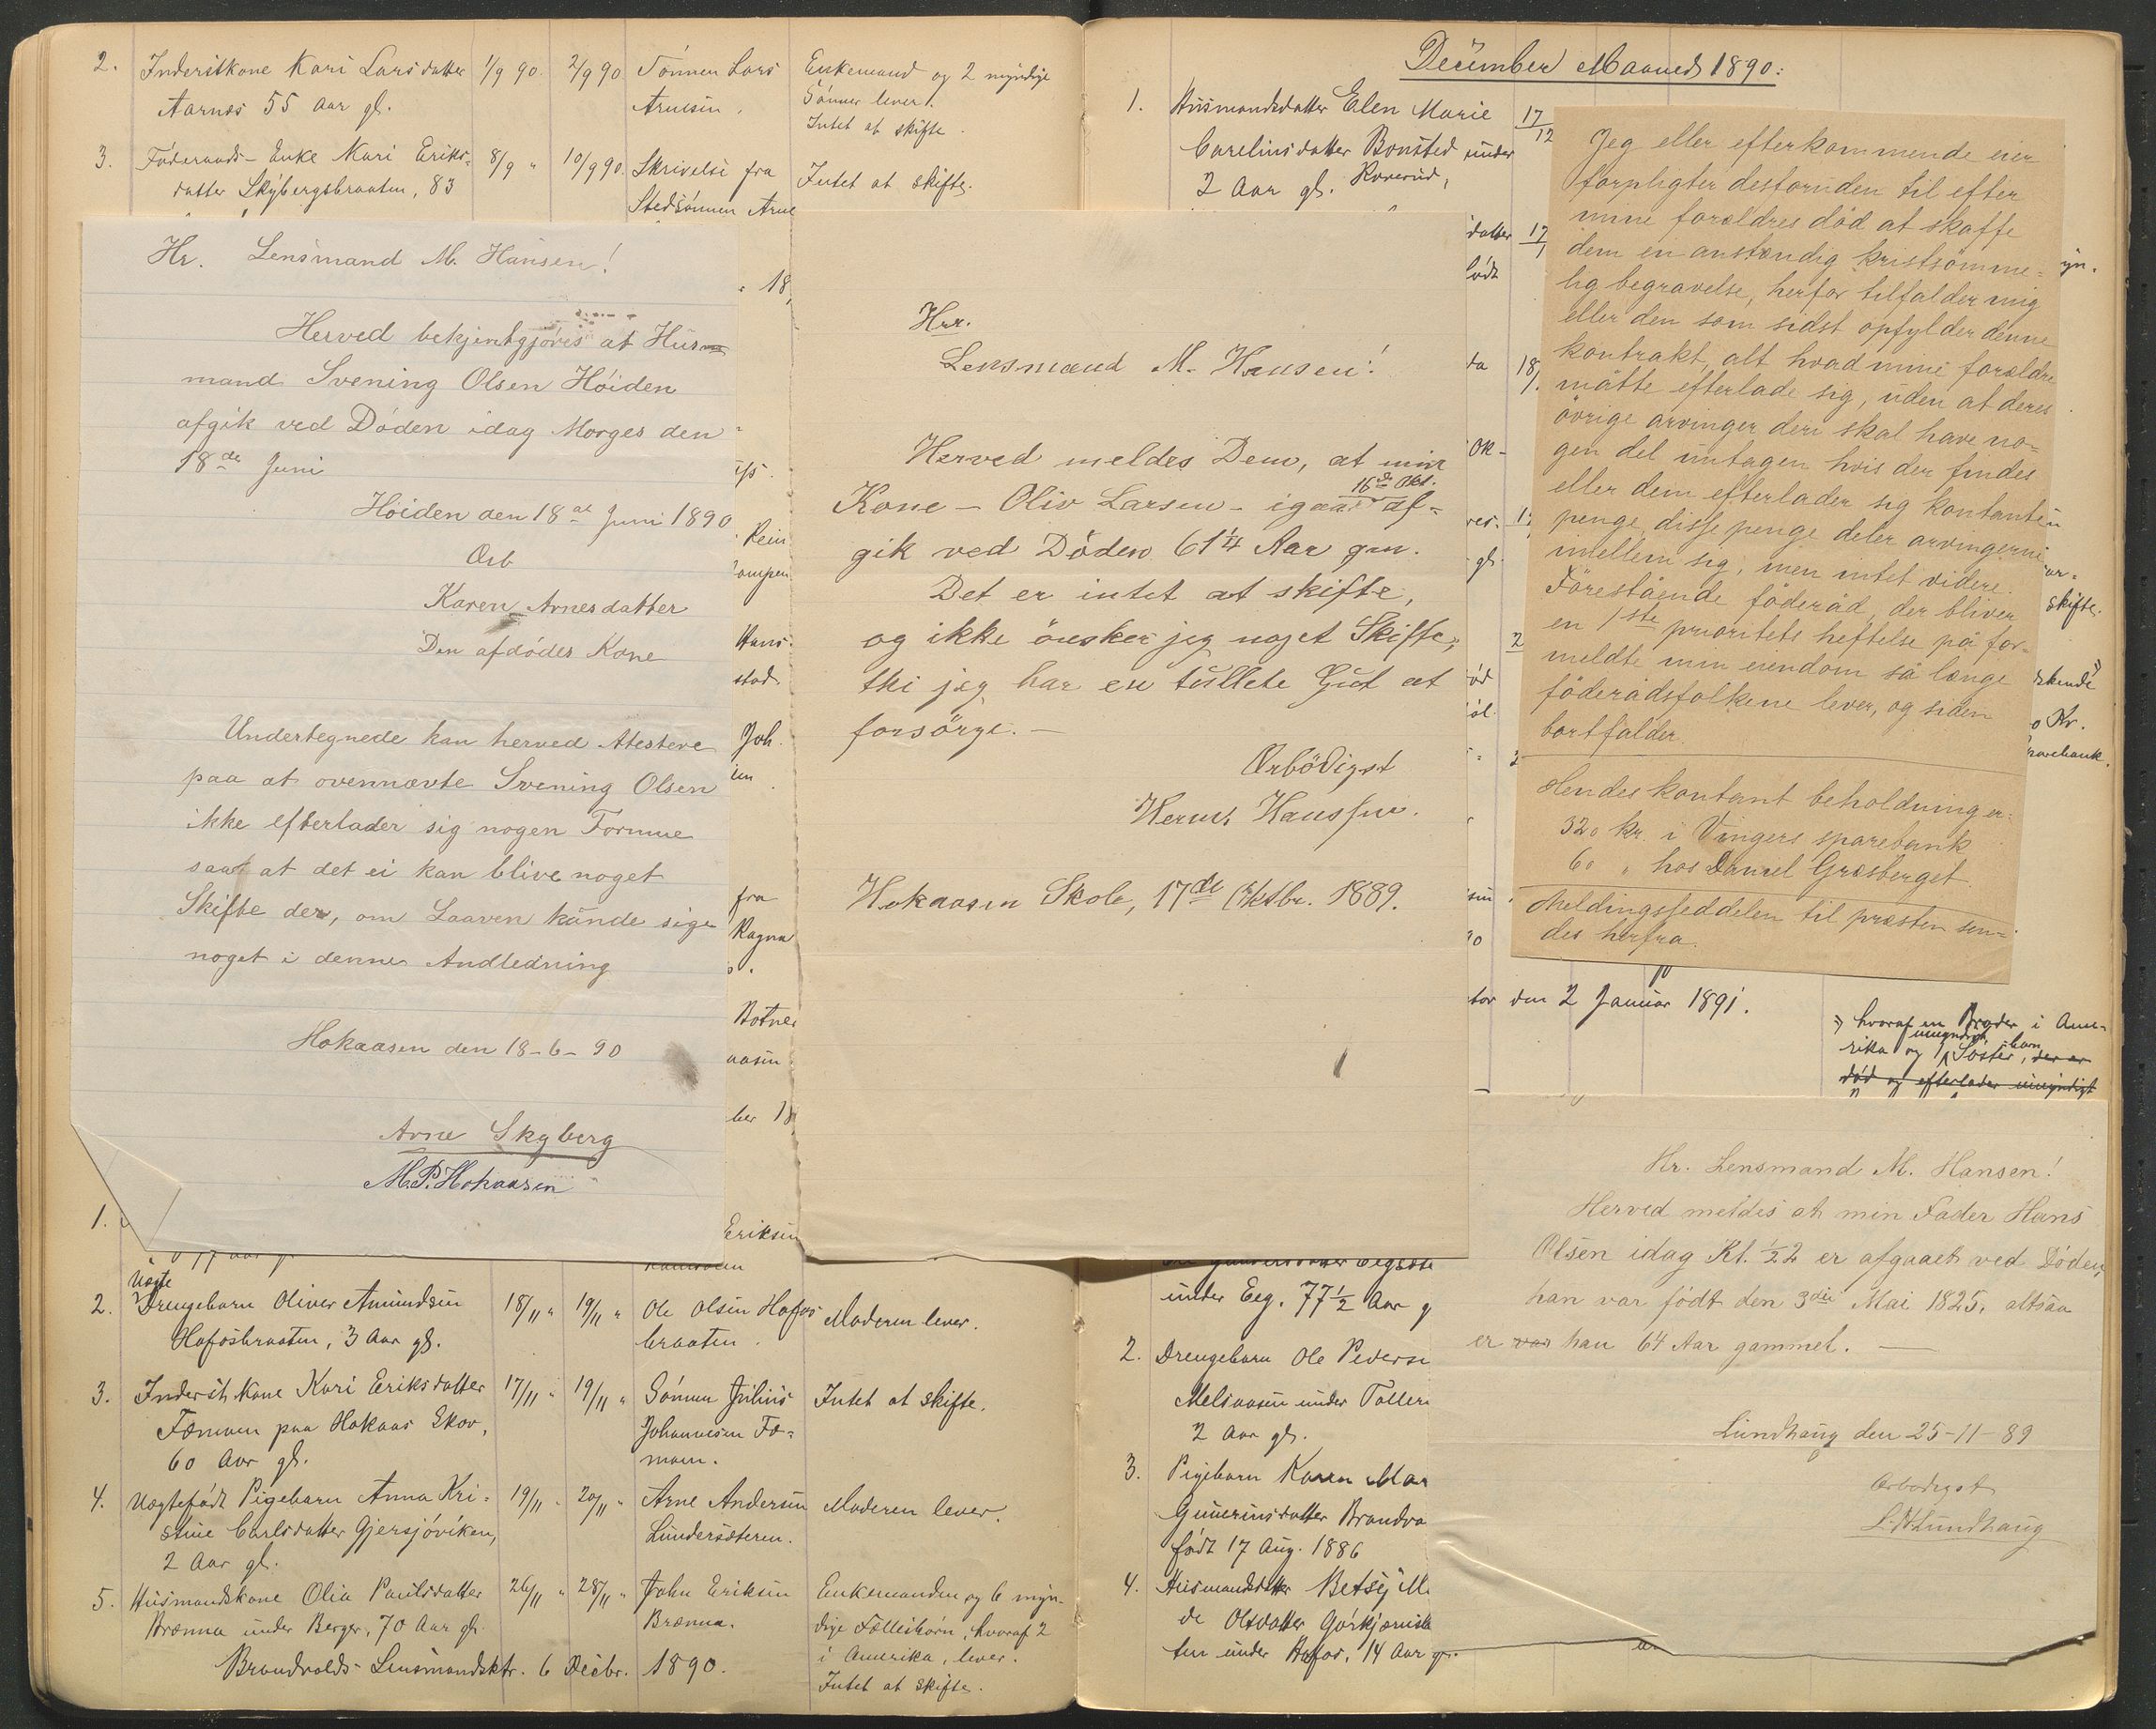 2. Inderstkone Kari Larsdatter 1/9 90. 2/9 90 Sönnen Lars Enkemand og 2 myndige
Aarnes 55 Aar gl. Arnesen. Sönner lever.
Intet at skifte.
3. Föderaads-Enke Kari Eriks- 8/9 " 10/9 90. Skrivelse fra Intet at skifte.
datter Skybergsbraaten, 83 Stedsönnen Arne
Hr. Lensmand M. Hansen!
Herved bekjentgjöres at Hus
mand Svening Olsen Höiden
afgik ved Döden idag Morges den
18de Juni
Höiden den 18de Juni 1890
Ærb
Karen Arnesdatter
Den afdödes Kone
Undertegnede kan herved Atestere
paa at ovennævte Svening Olsen
ikke efterlader sig nogen Formue
saa at det ei kan blive noget
Skifte der, om Laaven kunde sige
noget i dennes Andledning
Hokaasen den 18-6-90
Arne Skyberg
M.P. Hokaasen
18
Rein
Hans.
stad.
Joh.
fra
Ragna
Botner
aasen
ber 18
Eriksen
1.
2. Uægte Drengebarn Oliver Amundsen 18/11 " 19/11 " Ole Olsen Hofos- Moderen lever.
Hofosbraaten, 3 Aar gl. braaten.
3. Inderst Kone Kari Eriksdatter 17/11 " 19/11 " Sönnen Julius Intet at skifte.
Fæmoen paa Hokaas Skov, Johannesen Fæ-
60 Aar gl. moen.
4. Uægtefödt Pigebarn Anna Kri- 19/11 " 20/11 " Arne Andersen Moderen lever.
stine Carlsdatter Gjersjöviken, Lundersæteren.
2 Aar gl.
5. Husmandskone Olia Paulsdatter 26/11 " 28/11 " John Eriksen Enkemanden og 6 myn-
Brænna under Berger, 70 Aar gl. Brænna. dige Fællesbörn, hvoraf 2
i Amerika, lever.
Intet at skifte.
Brandvolds Lensmandsktr. 6 Decbr. 1890.
Hrr.
Lensmand M. Hansen!
Herved meldes Dem, at min
Kone - Oliv Larsen - igaar 16de Okt. af-
gik ved Döden 61 1/4 Aar gm.
Det er intet at skifte,
og ikke önsker jeg noget Skifte,
thi jeg har en tullete Gut at
forsörge. -
Ærbödigst
Hokaasen Skole, 17de Oktbr. 1889.
December Maaned 1890:
1. Husmandsdatter Elen Marie 17/12
Carelinsdatter Bonsted under
2 Aar gl. Roverud,
datter
födt
Jeg eller efterkommende eier
forpligter destoruden til efter
mine forældres död at skaffe
dem en anstændig kristsömme-
lig begravelse, herfor tilfalder mig
eller den som sidst opfylder denne
kontrakt, alt hvad mine forældre
måtte efterlade sig, uden at deres
övrige arvinger deri skal have no-
gen del untagen hvis der findes
eller dem efterlader sig kontante
penge, disse penge deler arvingerne
imellem sig, men intet videre.
Förestående föderåd, der bliver
en 1ste prioritets heftelse på for-
meldte min eiendom så længe
föderådsfolkene lever, og siden
bortfalder.
Hendes kontant beholdning er:
320 kr. i Vingers sparebank
60 " hos Daniel Græsberget.
Meldingsseddelen til præsten sen-
des herfra.
skifte.
Kr.
den 2 Januar 1891.
hvoraf en Broder i Ame-
rika og 1 umyndigt Söster, der er
död og efterlader umyndigt
Hr. Lensmand M. Hansen!
Herved meldes at min Fader Hans
Olsen idag Kl. 1/2 2 er afgaaet ved Döden,
han var födt den 3die Mai 1825, altsaa
er var han 64 Aar gammel. -
Lundhaug den 25-11-89
Ærbödigst
L. H. Lundhaug
under Eeg. 77 1/2 Aar g
2. Drengebarn Ole Pederse
Melsaasen under Toller
2 Aar gl.
3. Pigebarn Karen Mar
Gunerinsdatter Brandvo
födt 17 Aug. 1886
4. Husmandsdatter Betsy M
de Olsdatter Gørkjærnsbr
ten under Hofos, 14 Aar g